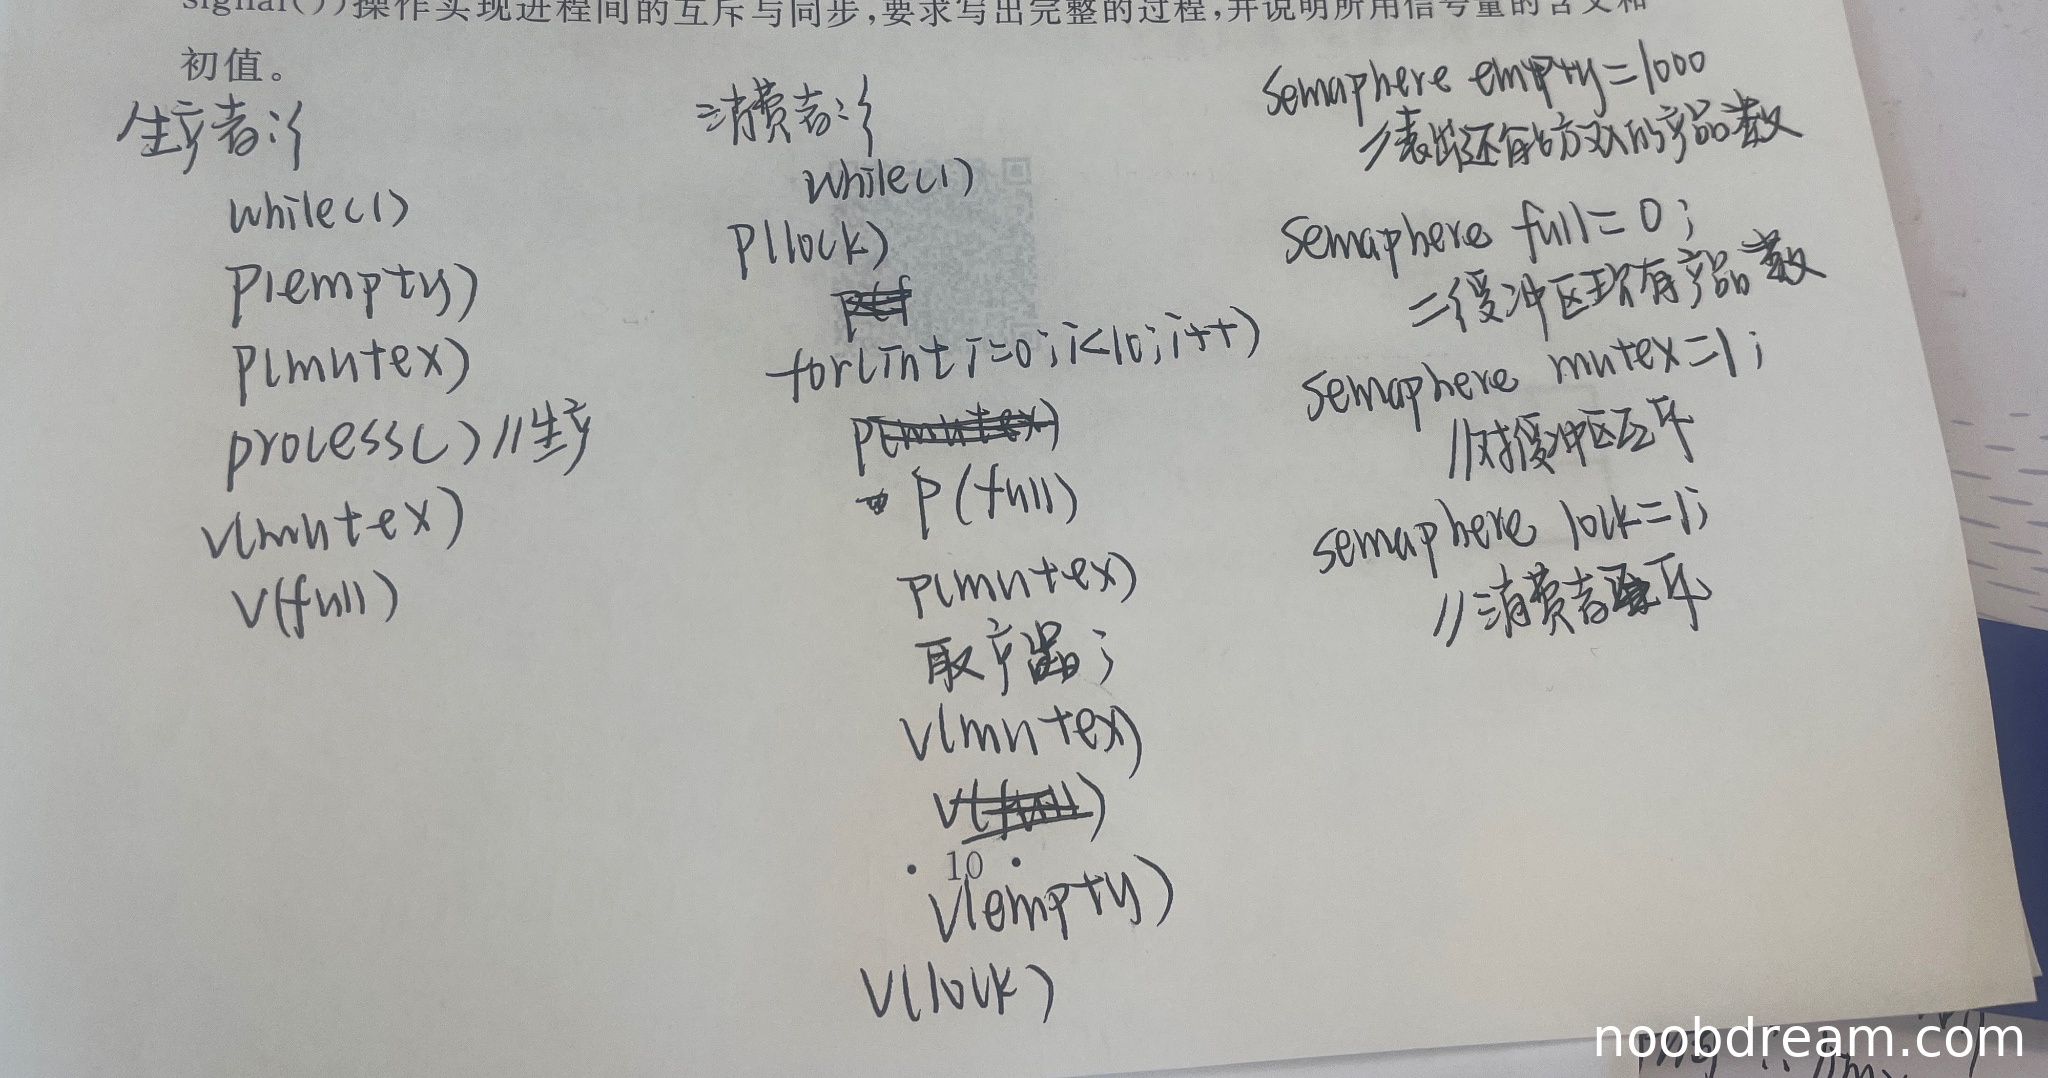 signal())操作实现进程间的互斥与同步,要求写出完整的过程,并说明所用信号量的含义和
初值。
生产者:{
while(1)
P(empty)
P(mutex)
process() //生产
V(mutex)
V(full)
消费者:{
while(1)
P(lock)
for(int i=0;i<10;i++)
P(full)
P(mutex)
取产品;
V(mutex)
V(empty)
V(lock)
semaphere empty=1000
//表 还 的产品数
semaphere full=0;
//缓冲区现有产品数
semaphere mutex=1;
//对缓冲区互斥
semaphere lock=1;
//消费者互斥
· 10 ·
noobdream.com